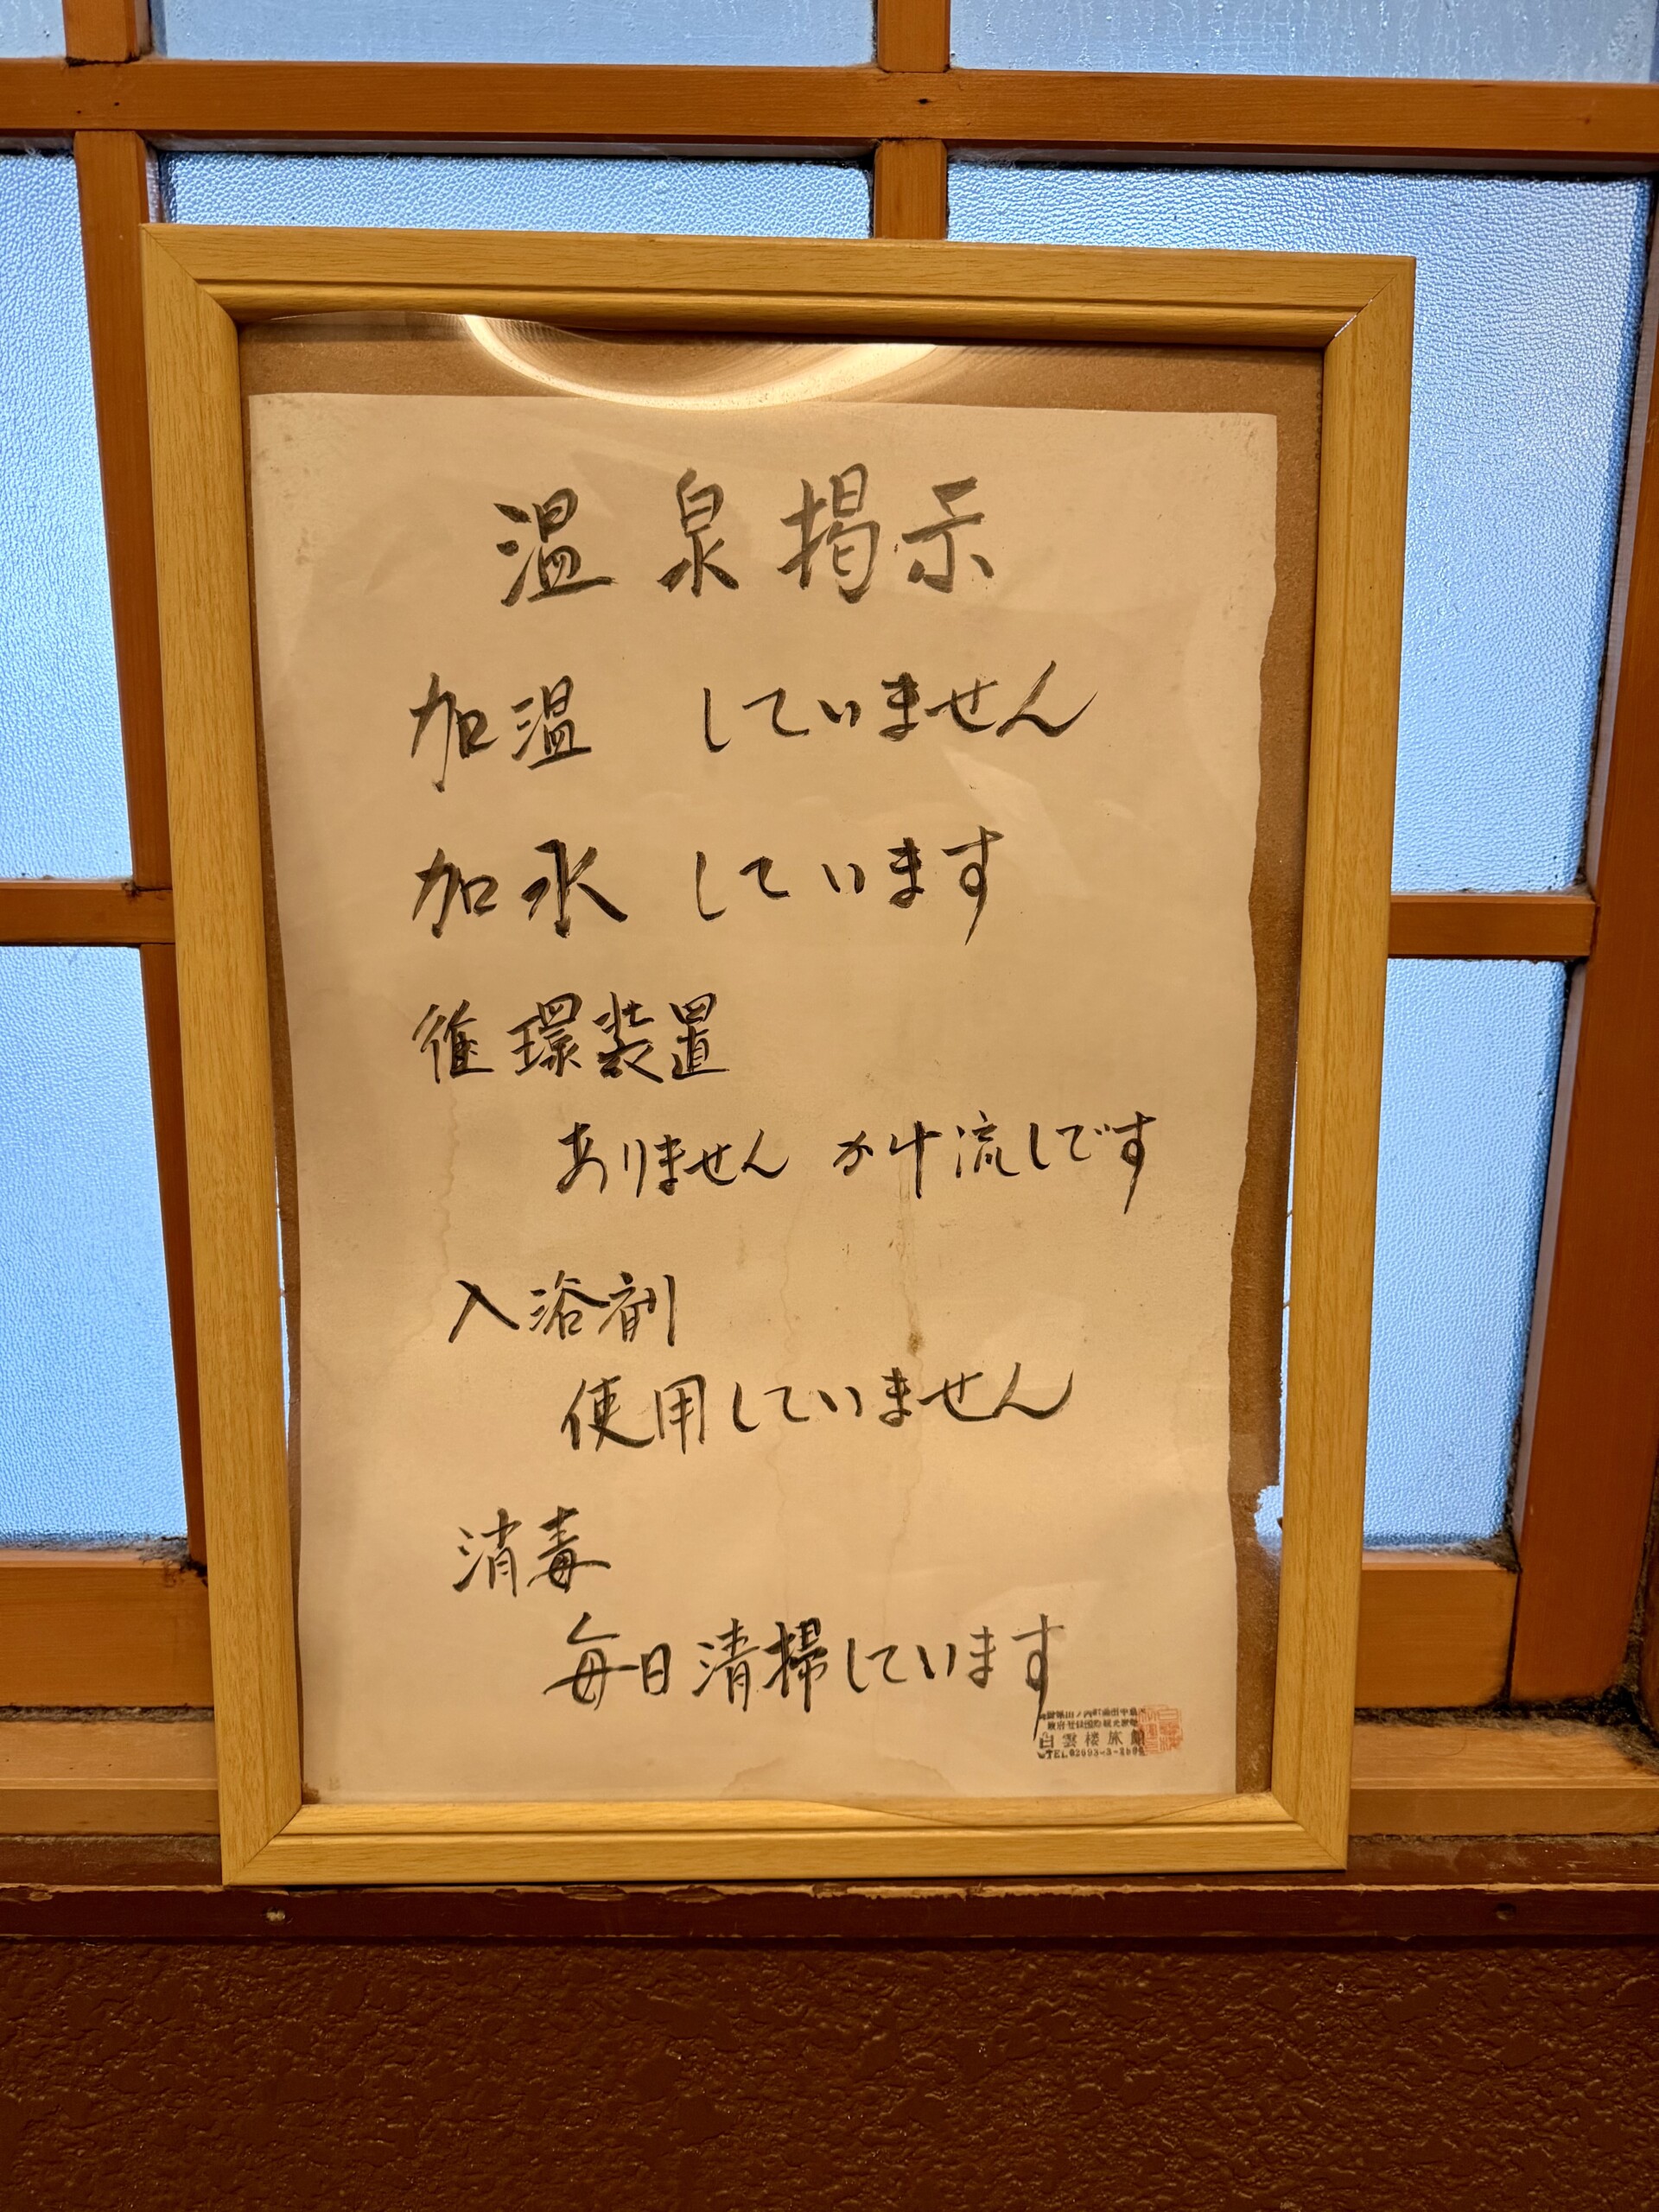 温泉掲示
加温 していません
加水 しています
循環装置
ありません かけ流しです
入浴剤
使用していません
消毒
毎日清掃しています
白雲楼旅館